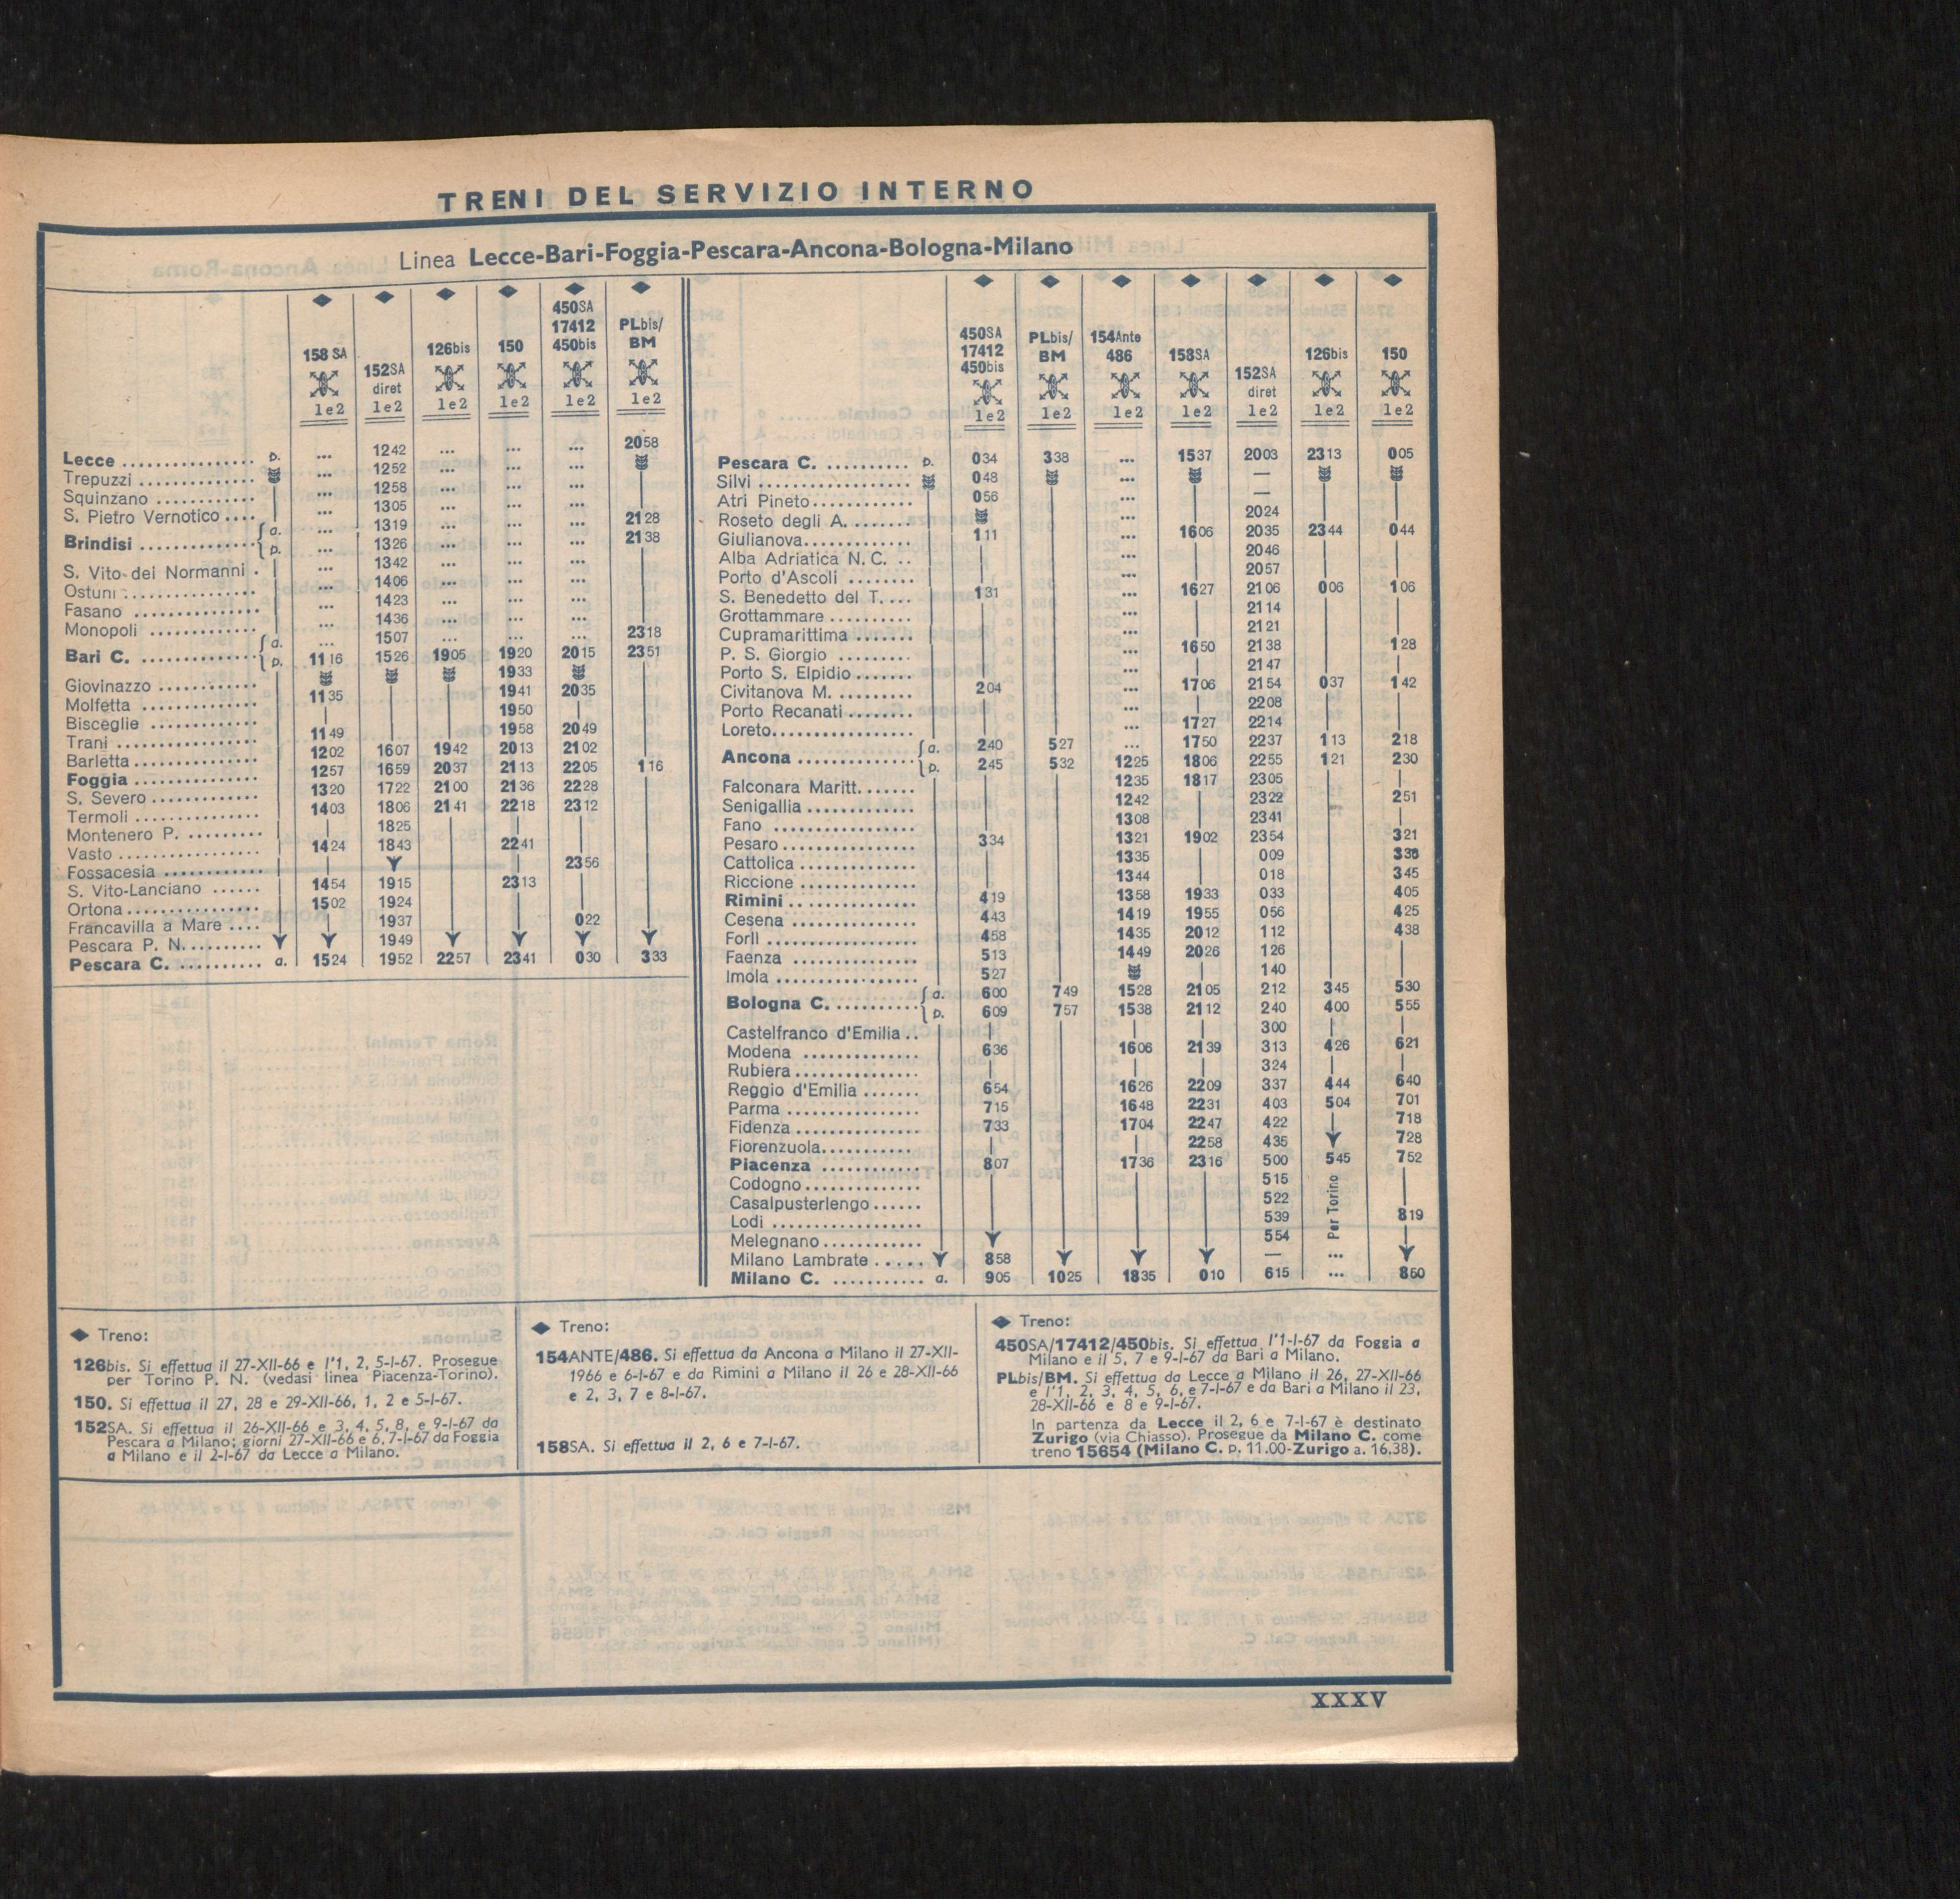 TRENI DEL SERVIZIO INTERNO
Linea Lecce-Bari-Foggia-Pescara-Ancona-Bologna-Milano
158 SA 152SA diret 126bis 150 450SA 17412 450bis PLbis/ BM
1e2 1e2 1e2 1e2 1e2 1e2
Lecce ................ p. ... 1242 ... ... ... 2058
Trepuzzi ................ ... 1252 ... ... ...
Squinzano ............ ... 1258 ... ... ...
S. Pietro Vernotico .... ... 1305 ... ... ...
Brindisi .............. a. ... 1319 ... ... ... 2128
p. ... 1326 ... ... ... 2138
S. Vito dei Normanni . ... 1342 ... ... ...
Ostuni ................ ... 1406 ... ... ...
Fasano ............... ... 1423 ... ... ...
Monopoli ............. ... 1436 ... ... ...
Bari C. ............... a. ... 1507 ... ... ... 2318
p. 1116 1526 1905 1920 2015 2351
Giovinazzo ............ 1933
Molfetta .............. 1135 1941 2035
Bisceglie ............. 1950
Trani ................. 1149 1958 2049
Barletta ............... 1202 1607 1942 2013 2102
Foggia ............... 1257 1659 2037 2113 2205 116
S. Severo ............. 1320 1722 2100 2136 2228
Termoli ............... 1403 1806 2141 2218 2312
Montenero P. ......... 1825
Vasto ................. 1424 1843 2241
Fossacesia ............ 2356
S. Vito-Lanciano ...... 1454 1915 2313
Ortona ................ 1502 1924
Francavilla a Mare .... 1937 022
Pescara P. N. ......... 1949
Pescara C. .......... a. 1524 1952 2257 2341 030 333
450SA 17412 450bis PLbis/ BM 154Ante 486 158SA 152SA diret 126bis 150
1e2 1e2 1e2 1e2 1e2 1e2 1e2
Pescara C. .......... p. 034 338 ... 1537 2003 2313 005
Silvi .................. 048 ... —
Atri Pineto............ 056 ... —
Roseto degli A. ....... ... 2024
Giulianova............. 111 ... 1606 2035 2344 044
Alba Adriatica N. C. .. ... 2046
Porto d'Ascoli ........ ... 2057
S. Benedetto del T. ... 131 ... 1627 2106 006 106
Grottammare .......... ... 2114
Cupramarittima ....... ... 2121
P. S. Giorgio ......... ... 1650 2138 128
Porto S. Elpidio ....... ... 2147
Civitanova M. ......... 204 ... 1706 2154 037 142
Porto Recanati ........ ... 2208
Loreto................. ... 1727 2214
Ancona .............. a. 240 527 ... 1750 2237 113 218
p. 245 532 1225 1806 2255 121 230
Falconara Maritt. ...... 1235 1817 2305
Senigallia ............. 1242 2322 251
Fano .................. 1308 2341
Pesaro ................ 334 1321 1902 2354 321
Cattolica .............. 1335 009 338
Riccione .............. 1344 018 345
Rimini ................ 419 1358 1933 033 405
Cesena ............... 443 1419 1955 056 425
Forlì .................. 458 1435 2012 112 438
Faenza ............... 513 1449 2026 126
Imola ................. 527 140
Bologna C. ........... a. 600 749 1528 2105 212 345 530
p. 609 757 1538 2112 240 400 555
Castelfranco d'Emilia .. 300
Modena .............. 636 1606 2139 313 426 621
Rubiera ............... 324
Reggio d'Emilia ....... 654 1626 2209 337 444 640
Parma ................ 715 1648 2231 403 504 701
Fidenza ............... 733 1704 2247 422 718
Fiorenzuola............ 2258 435 728
Piacenza ............ 807 1736 2316 500 545 752
Codogno .............. 515
Casalpusterlengo ...... 522
Lodi .................. 539 819
Melegnano ............ 554
Per Torino
Milano Lambrate ..... 858 — ...
Milano C. ........... a. 905 1025 1835 010 615 ... 850
◆ Treno:
126bis. Si effettua il 27-XII-66 e l'1, 2, 5-I-67. Prosegue
per Torino P. N. (vedasi linea Piacenza-Torino).
150. Si effettua il 27, 28 e 29-XII-66, 1, 2 e 5-I-67.
152SA. Si effettua il 26-XII-66 e 3, 4, 5, 8, e 9-I-67 da
Pescara a Milano; giorni 27-XII-66 e 6, 7-I-67 da Foggia
a Milano e il 2-I-67 da Lecce a Milano.
◆ Treno:
154ANTE/486. Si effettua da Ancona a Milano il 27-XII-
1966 e 6-I-67 e da Rimini a Milano il 26 e 28-XII-66
e 2, 3, 7 e 8-I-67.
158SA. Si effettua il 2, 6 e 7-I-67.
◆ Treno:
450SA/17412/450bis. Si effettua l'1-I-67 da Foggia a
Milano e il 5, 7 e 9-I-67 da Bari a Milano.
PLbis/BM. Si effettua da Lecce a Milano il 26, 27-XII-66
e l'1, 2, 3, 4, 5, 6, e 7-I-67 e da Bari a Milano il 23,
28-XII-66 e 8 e 9-I-67.
In partenza da Lecce il 2, 6 e 7-I-67 è destinato
Zurigo (via Chiasso). Prosegue da Milano C. come
treno 15654 (Milano C. p. 11.00-Zurigo a. 16.38).
XXXV